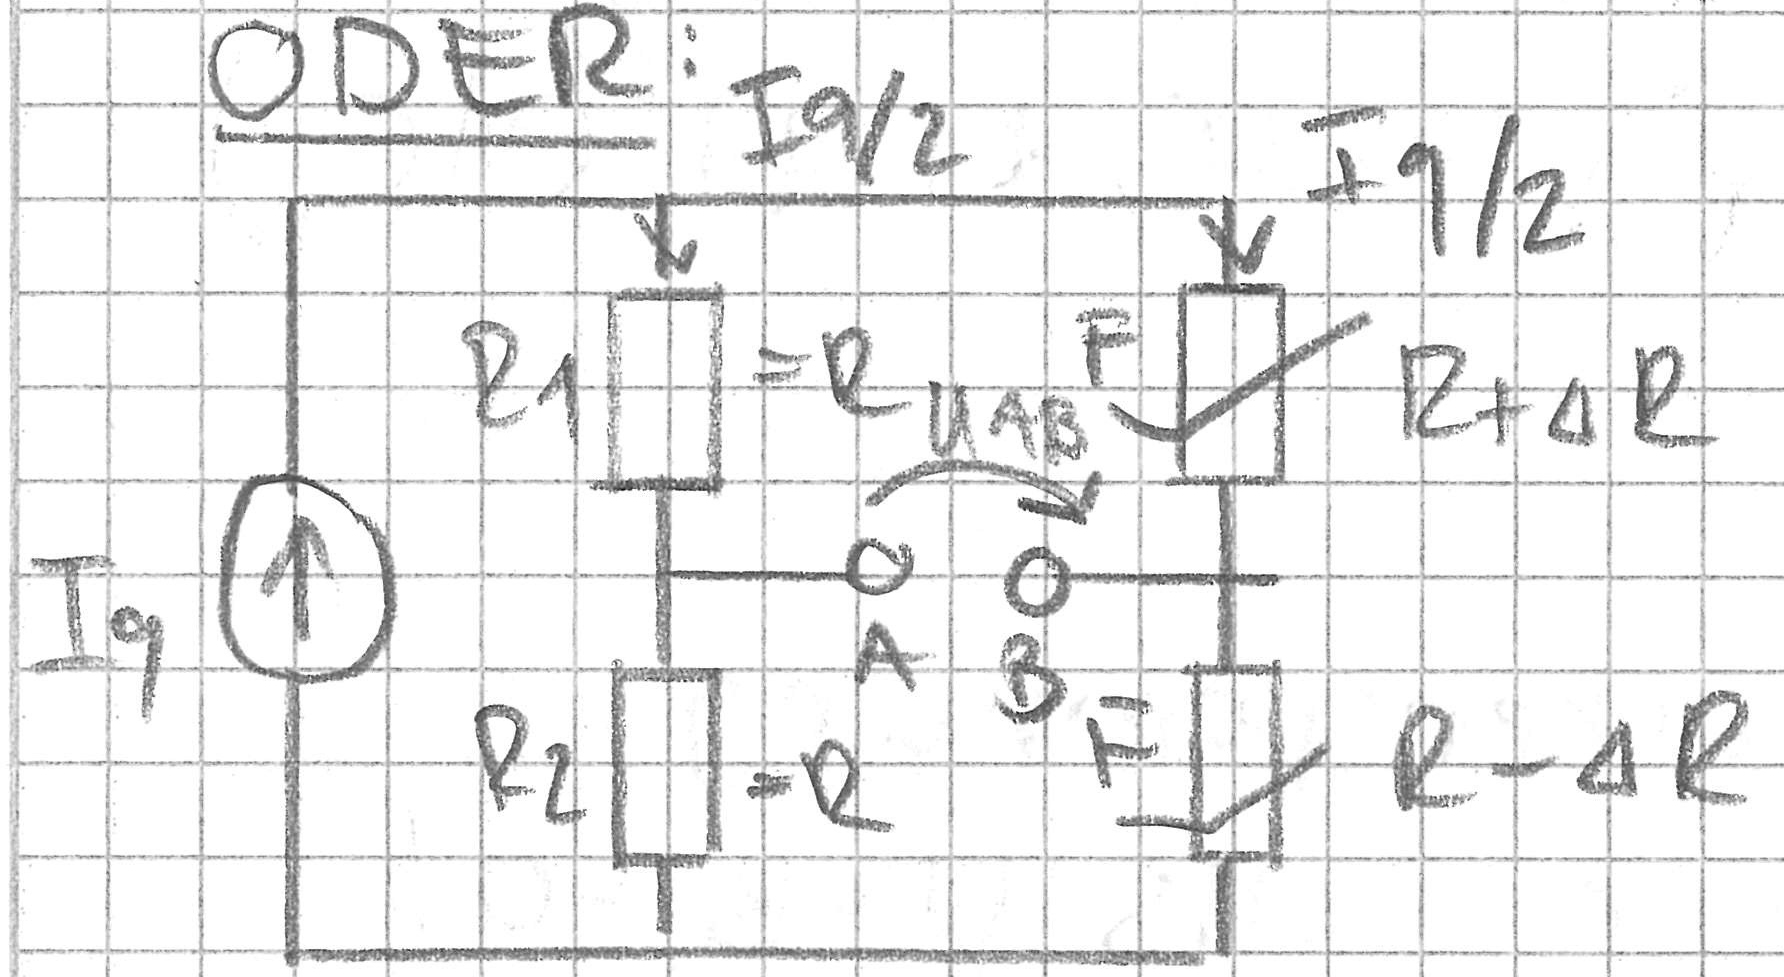 ODER:
Iq/2
Iq/2
R1
=R
UAB
F
R+ΔR
Iq
A
B
R2
=R
F
R-ΔR